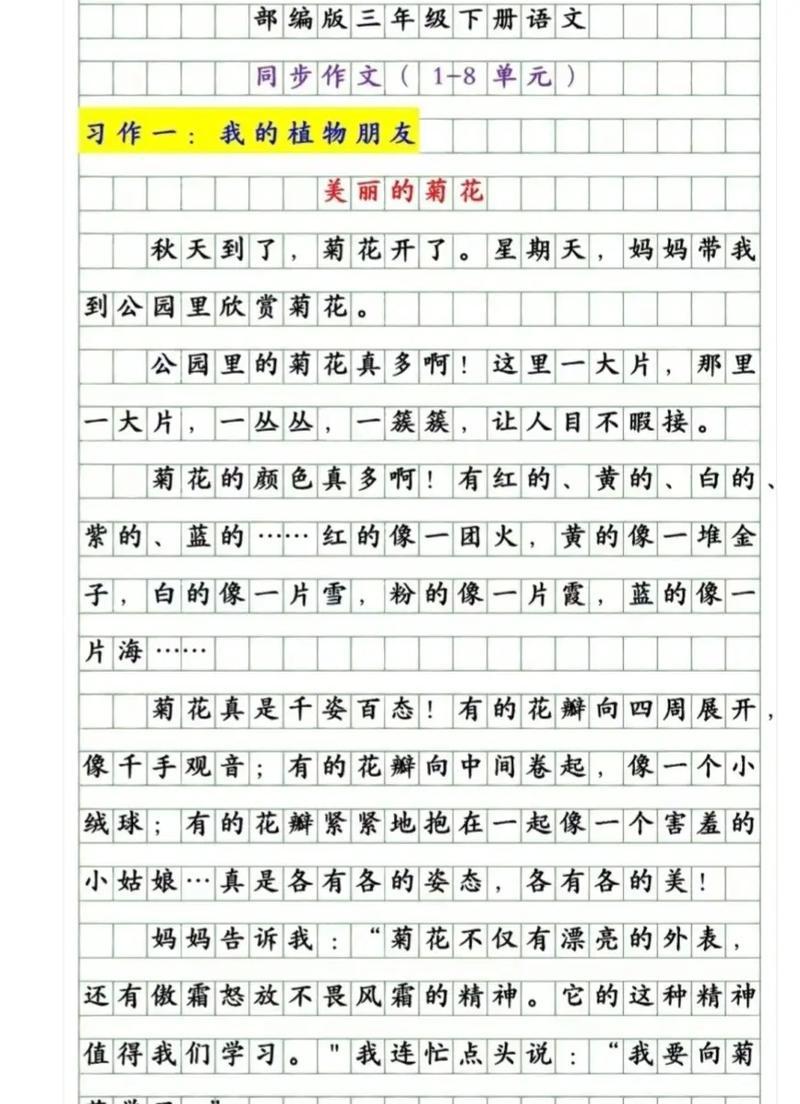 部编版三年级下册语文
同步作文(1-8单元)
习作一:我的植物朋友
美丽的菊花
秋天到了,菊花开了。星期天,妈妈带我
到公园里欣赏菊花。
公园里的菊花真多啊!这里一大片,那里
一大片,一丛丛,一簇簇,让人目不暇接。
菊花的颜色真多啊!有红的、黄的、白的、
紫的、蓝的……红的像一团火,黄的像一堆金
子,白的像一片雪,粉的像一片霞,蓝的像一
片海……
菊花真是千姿百态!有的花瓣向四周展开,
像千手观音;有的花瓣向中间卷起,像一个小
绒球;有的花瓣紧紧地抱在一起像一个害羞的
小姑娘…真是各有各的姿态,各有各的美!
妈妈告诉我:“菊花不仅有漂亮的外表,
还有傲霜怒放不畏风霜的精神。它的这种精神
值得我们学习。"我连忙点头说:“我要向菊